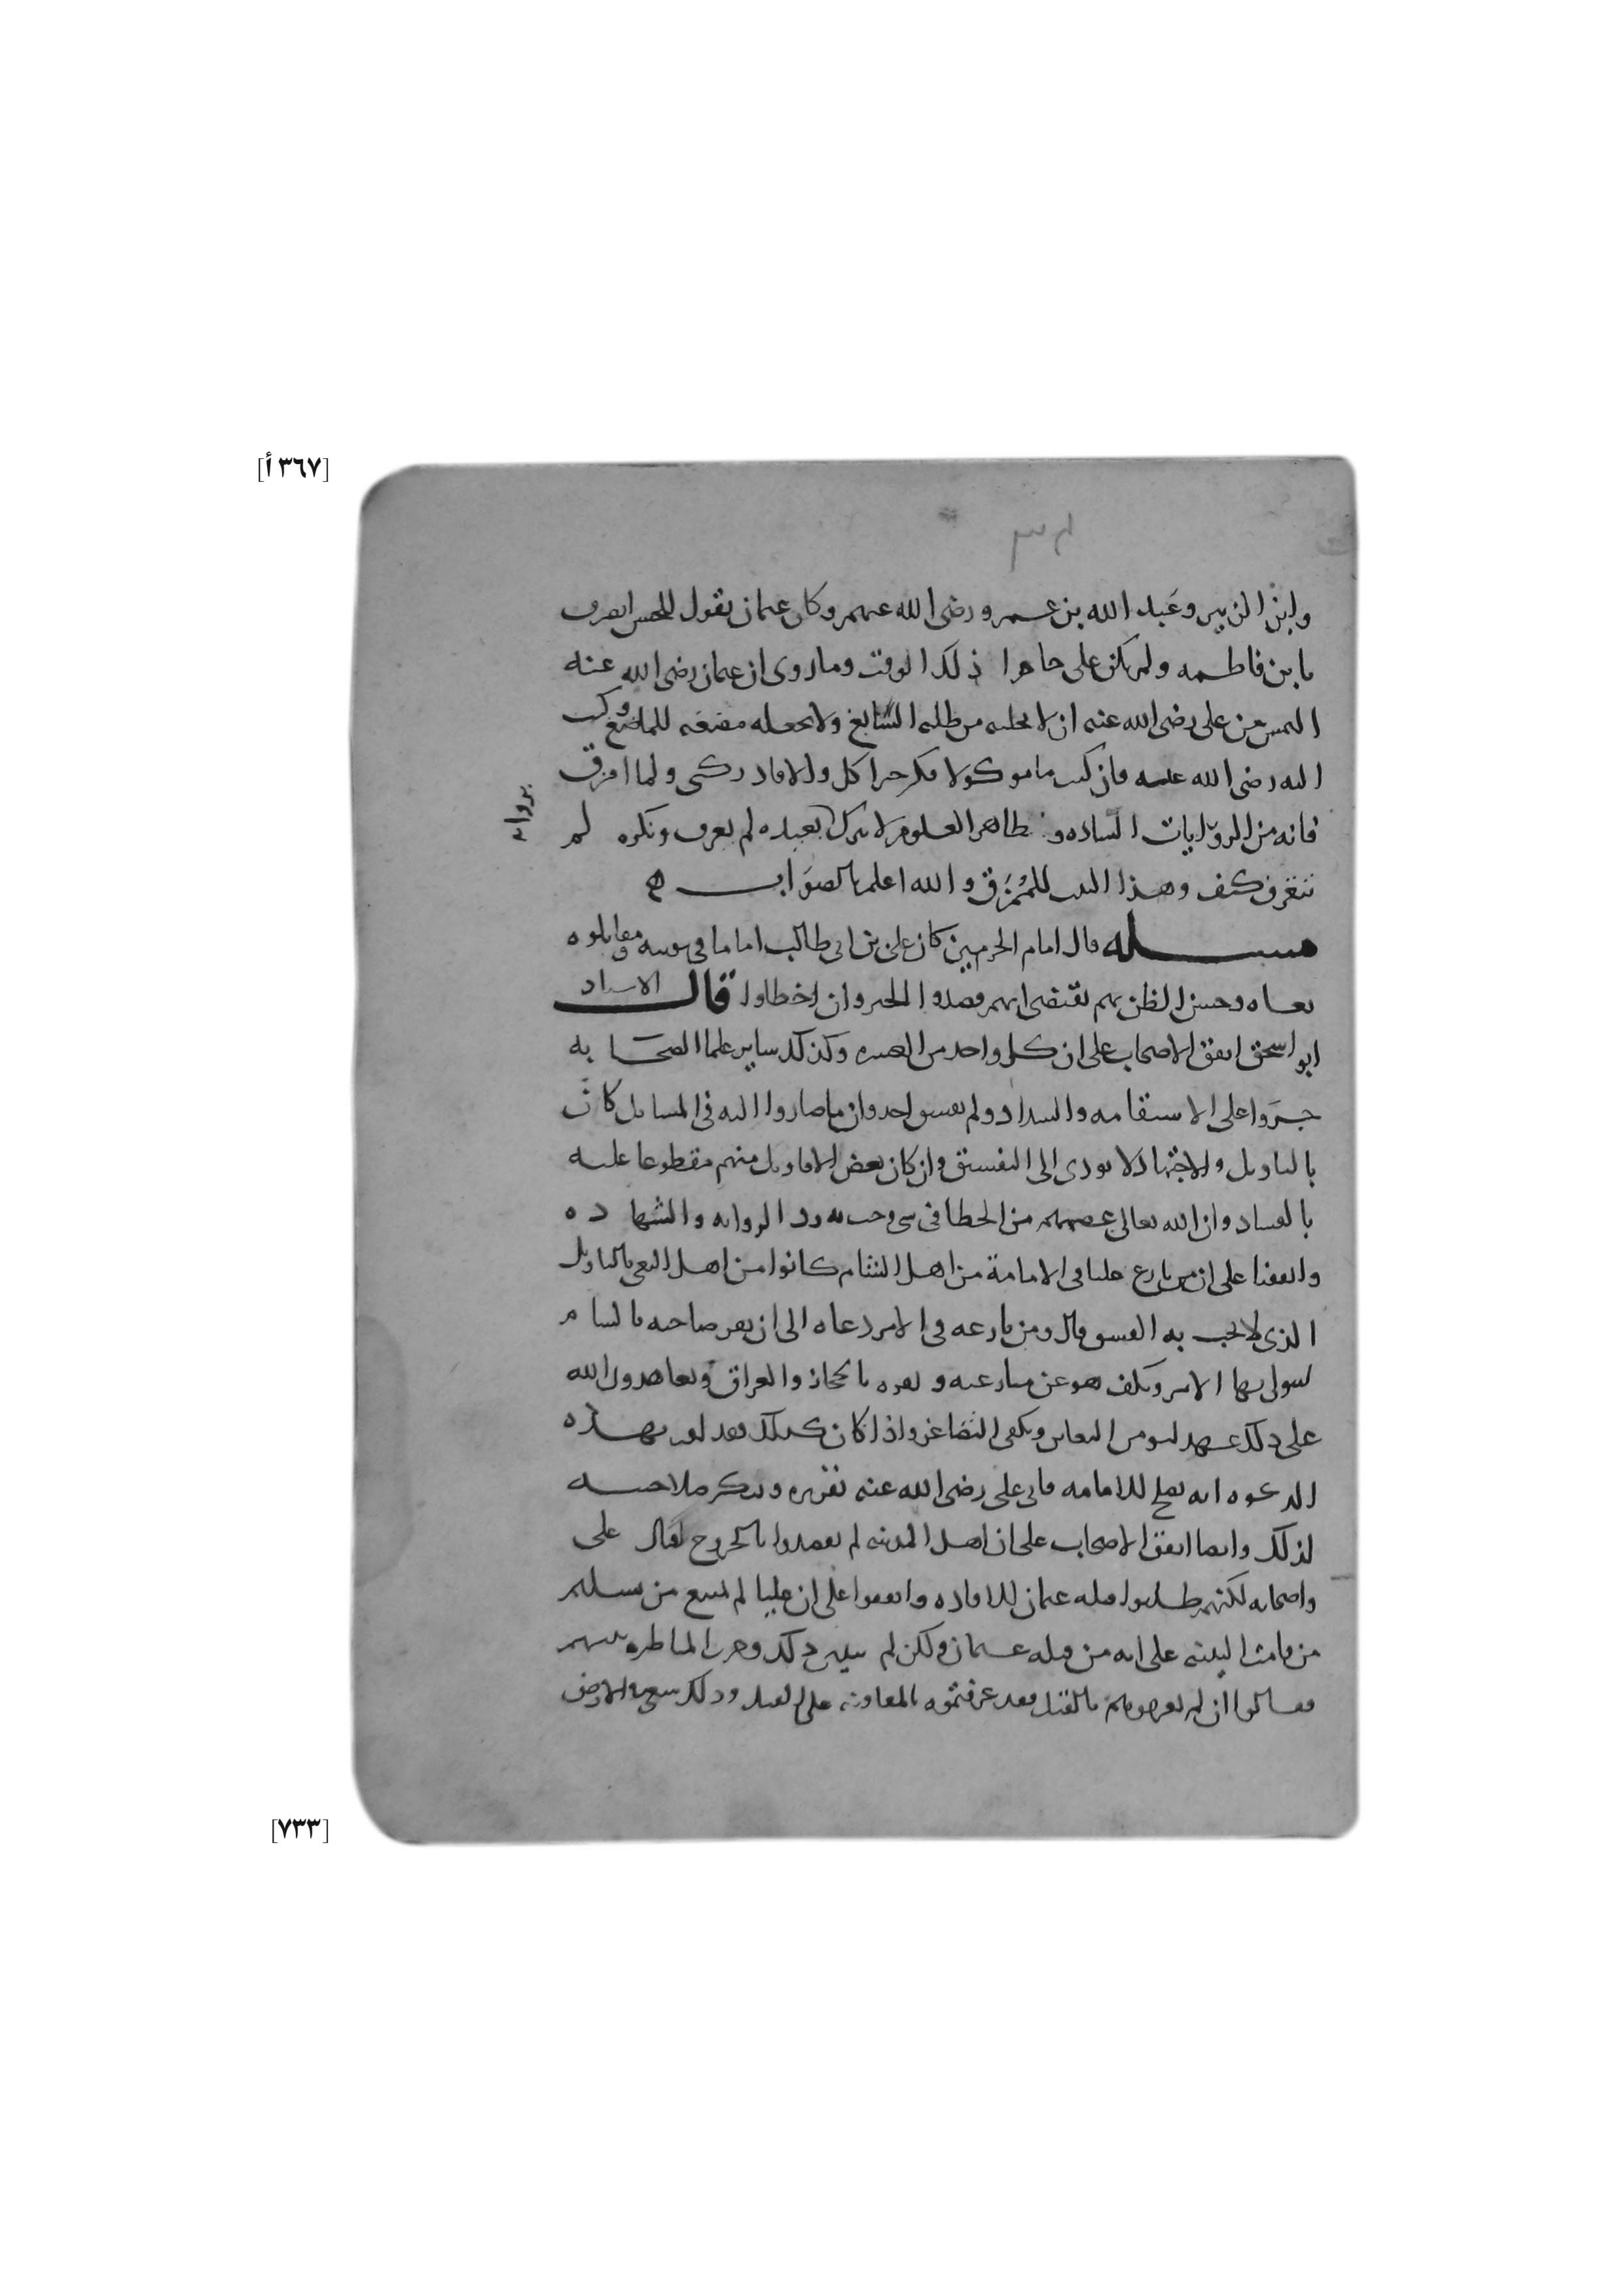 [٣٦٧ أ]
وابن الزبير وعبد الله بن عمرو رضى الله عنهم وكان عثمان يقول للحسن انصرف
يا بن فاطمه ولم يكن على حاضرا ذلك الوقت وما روى ان عثمان رضى الله عنه
التمس من على رضى الله عنه ان لا يخليه من طلبه ولا يجعله مضغه للماضغ وكتب
اليه رضى الله عنه فان كنت ماكولا فكن خير اكل والا فادركنى ولما امزق
فانه من الروايات الشاده و ظاهر العلوم لا يترك بعيده لم يعرف ونكره لم
تتعرف كيف وهذا البيت للممزق والله اعلم بالصواب
مسله قال امام الحرمين كان على بن ابى طالب اماما فى توليه ومقاتلوه
بغاه وحسن الظن بهم يقتضى انهم قصدوا الخير وان اخطاوا قال الاستاد
ابو اسحق اتفق الاصحاب على ان كل واحد من العشره وكذلك ساير علما الصحابه
جروا على الاستقامه والسداد ولم يفسق احد وان ما صاروا اليه فى المسايل كان
بالتاويل والاجتهاد لا يودى الى التفسيق وان كان بعض الاقاويل منهم مقطوعا عليه
بالفساد وان الله تعالى عصمهم من الخطا فى شى وجب به رد الروايه والشهاده
واتفقا على ان من نازع عليا فى الامامة من اهل الشام كانوا من اهل البغى بالتاويل
الذى لا يجب به الفسق قال ومن نازعه فى الامر دعاه الى ان يقر صاحبه بالشام
ليتولى بها الامر ويكف هو عن منازعته ويقره بالحجاز والعراق ويعاهدون الله
على ذلك عهد ويكفى التضاغن واذا كان كذلك فقد بهذه
الدعوه انه يصلح للامامه فابى على رضى الله عنه تقريره وينكر صلاحيته
لذلك وايضا اتفق الاصحاب على ان اهل المدينه لم يقصدوا بالخروج لقتال على
واصحابه لكنهم طلبوا قتله عثمان للاقاده واتفقوا على ان عليا لم يمنع من تسليم
من قامت البينه على انه من قتله عثمان ولكن لم ذلك وجرت المناظره بينهم
فقالوا ان لم تعرفوهم بالقتل فقد عرفتموه بالمعاونه على القتل وذلك الارض
[٧٣٣]